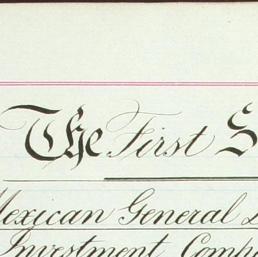 The First S
Mexican General L
Investment Compa